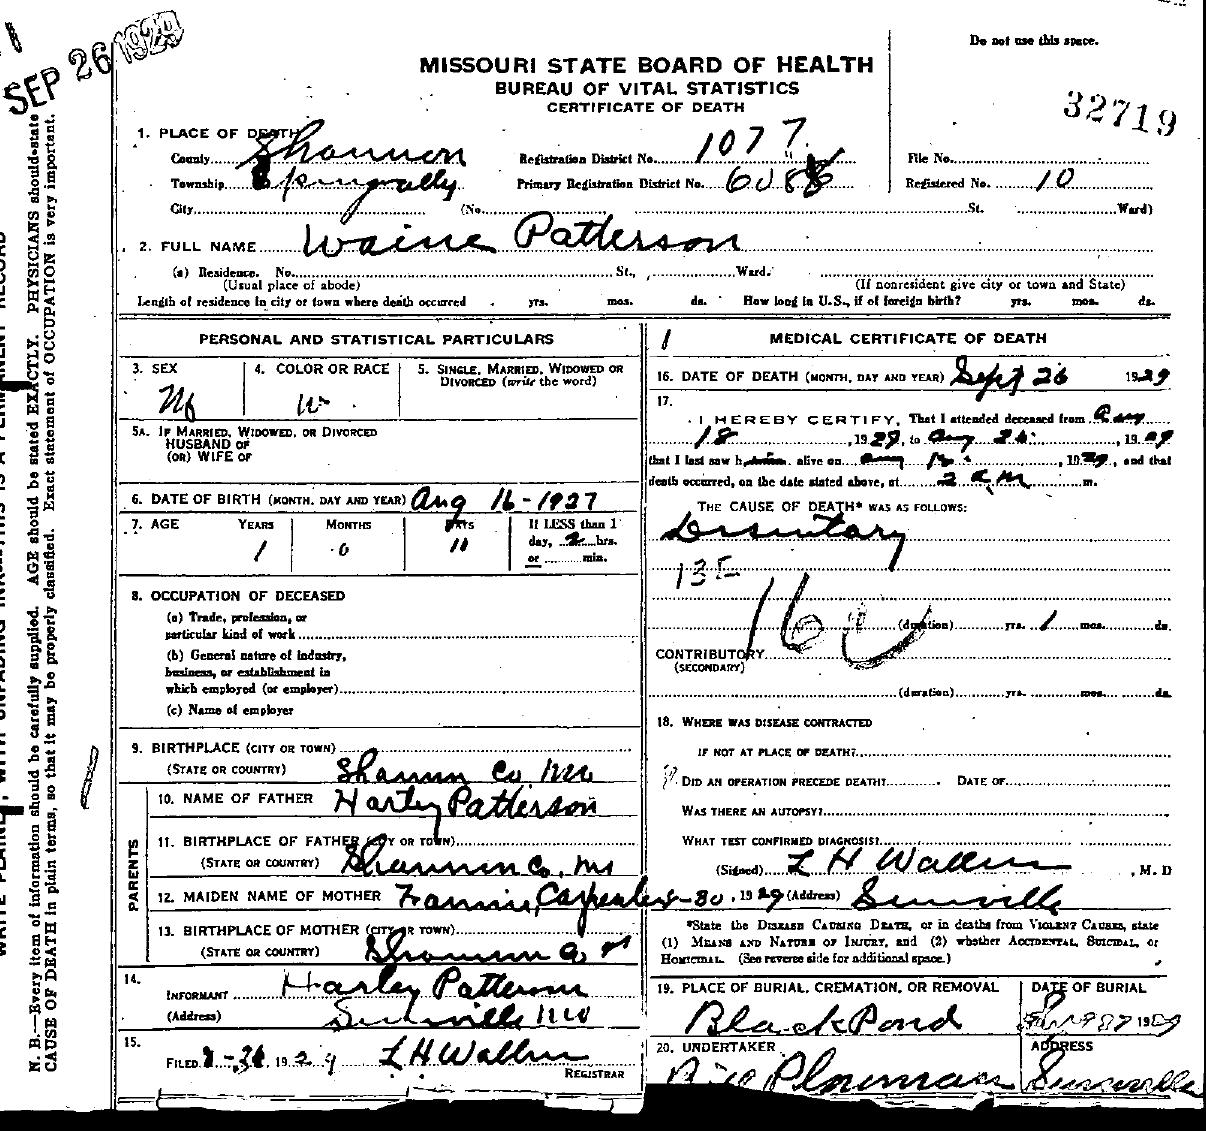 SEP 26 1929
Do not use this space.
MISSOURI STATE BOARD OF HEALTH
BUREAU OF VITAL STATISTICS
CERTIFICATE OF DEATH
32719
1. PLACE OF DEATH
County Shannon Registration District No. 1077 File No.
Township Primary Registration District No. Registered No. 10
City (No. St. Ward)
2. FULL NAME Waine Patterson
(a) Residence. No. St., Ward.
(Usual place of abode) (If nonresident give city or town and State)
Length of residence in city or town where death occurred yrs. mos. ds. How long in U.S., if of foreign birth? yrs. mos. ds.
PERSONAL AND STATISTICAL PARTICULARS
3. SEX 4. COLOR OR RACE 5. SINGLE, MARRIED, WIDOWED OR
DIVORCED (write the word)
M W
5A. IF MARRIED, WIDOWED, OR DIVORCED
HUSBAND OF
(OR) WIFE OF
6. DATE OF BIRTH (MONTH, DAY AND YEAR) Aug 16-1927
7. AGE YEARS MONTHS DAYS If LESS than 1
1 0 11 day, 2 hrs.
or min.
8. OCCUPATION OF DECEASED
(a) Trade, profession, or
particular kind of work
(b) General nature of industry,
business, or establishment in
which employed (or employer)
(c) Name of employer
9. BIRTHPLACE (CITY OR TOWN)
(STATE OR COUNTRY) Shannon Co Mo
PARENTS
10. NAME OF FATHER Harley Patterson
11. BIRTHPLACE OF FATHER (CITY OR TOWN)
(STATE OR COUNTRY) Shannon Co. Mo
12. MAIDEN NAME OF MOTHER Fannie Carpenter
13. BIRTHPLACE OF MOTHER (CITY OR TOWN)
(STATE OR COUNTRY) Shannon Co
14.
INFORMANT Harley Patterson
(Address) Mo
15.
FILED 1929 L H Wallen
REGISTRAR
1 MEDICAL CERTIFICATE OF DEATH
16. DATE OF DEATH (MONTH, DAY AND YEAR) Sept 26 1929
17.
I HEREBY CERTIFY, That I attended deceased from Aug
18, 1929, to Aug 26, 1929
that I last saw him alive on Aug, 1929, and that
death occurred, on the date stated above, at 2 am m.
THE CAUSE OF DEATH* WAS AS FOLLOWS:
Disentary
13
16
(duration) yrs. 1 mos. ds.
CONTRIBUTORY
(SECONDARY)
(duration) yrs. mos. ds.
18. WHERE WAS DISEASE CONTRACTED
IF NOT AT PLACE OF DEATH?
DID AN OPERATION PRECEDE DEATH? DATE OF
WAS THERE AN AUTOPSY?
WHAT TEST CONFIRMED DIAGNOSIS?
(Signed) L H Wallen, M. D
8-30, 1929 (Address)
*State the DISEASE CAUSING DEATH, or in deaths from VIOLENT CAUSES, state
(1) MEANS AND NATURE OF INJURY, and (2) whether ACCIDENTAL, SUICIDAL, or
HOMICIDAL. (See reverse side for additional space.)
19. PLACE OF BURIAL, CREMATION, OR REMOVAL DATE OF BURIAL
Black Pond
20. UNDERTAKER ADDRESS
N. B.—Every item of information should be carefully supplied. AGE should be stated EXACTLY. PHYSICIANS should state
CAUSE OF DEATH in plain terms, so that it may be properly classified. Exact statement of OCCUPATION is very important.